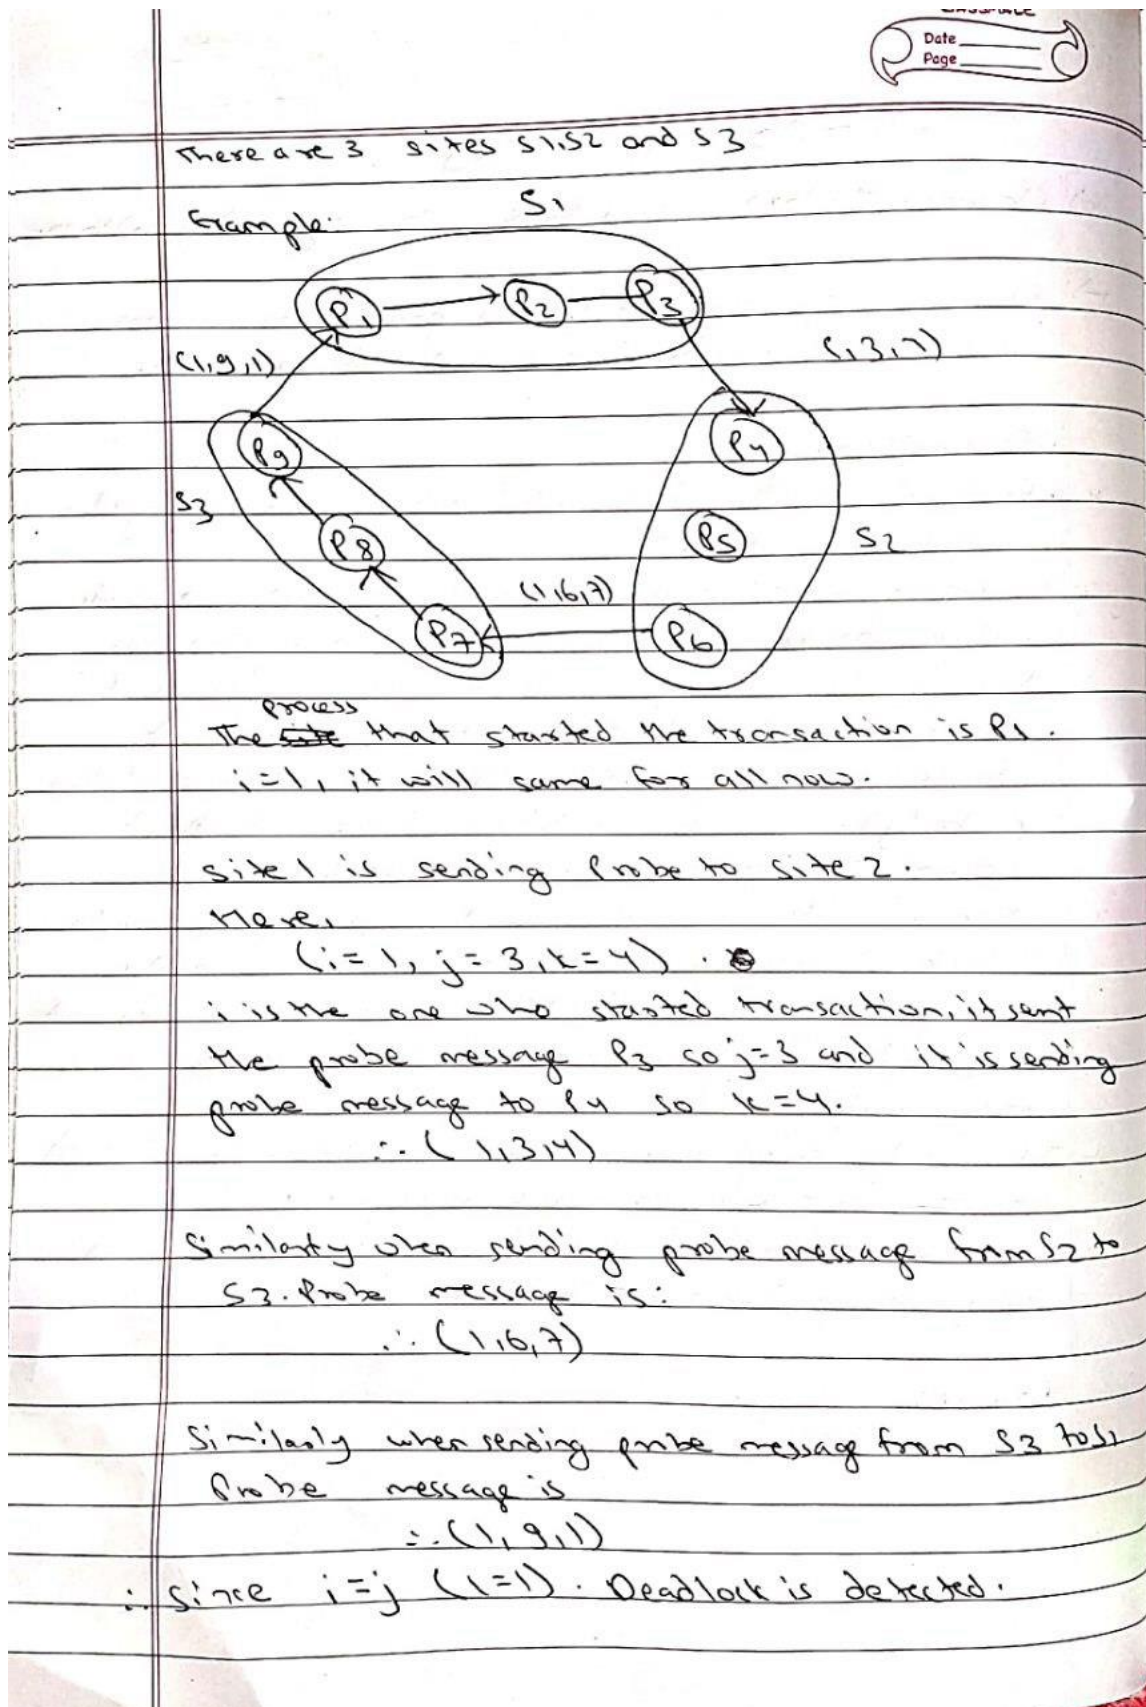 Date
Page
There are 3 sites S1,S2 and S3
Example:
S1
P1
P2
P3
(1,9,1)
(1,3,4)
P9
P4
S3
P8
P5
S2
(1,6,7)
P7
P6
process
The site that started the transaction is P1.
i=1, it will same for all now.
Site 1 is sending Probe to Site 2.
Here,
(i=1, j=3, k=4).
i is the one who started transaction, it sent
the probe message P3 so j=3 and it is sending
probe message to P4 so k=4.
∴ (1,3,4)
Similarly when sending probe message from S2 to
S3. Probe message is:
∴ (1,6,7)
Similarly when sending probe message from S3 to S1
Probe message is
∴ (1,9,1)
∴ Since i=j (1=1). Deadlock is detected.